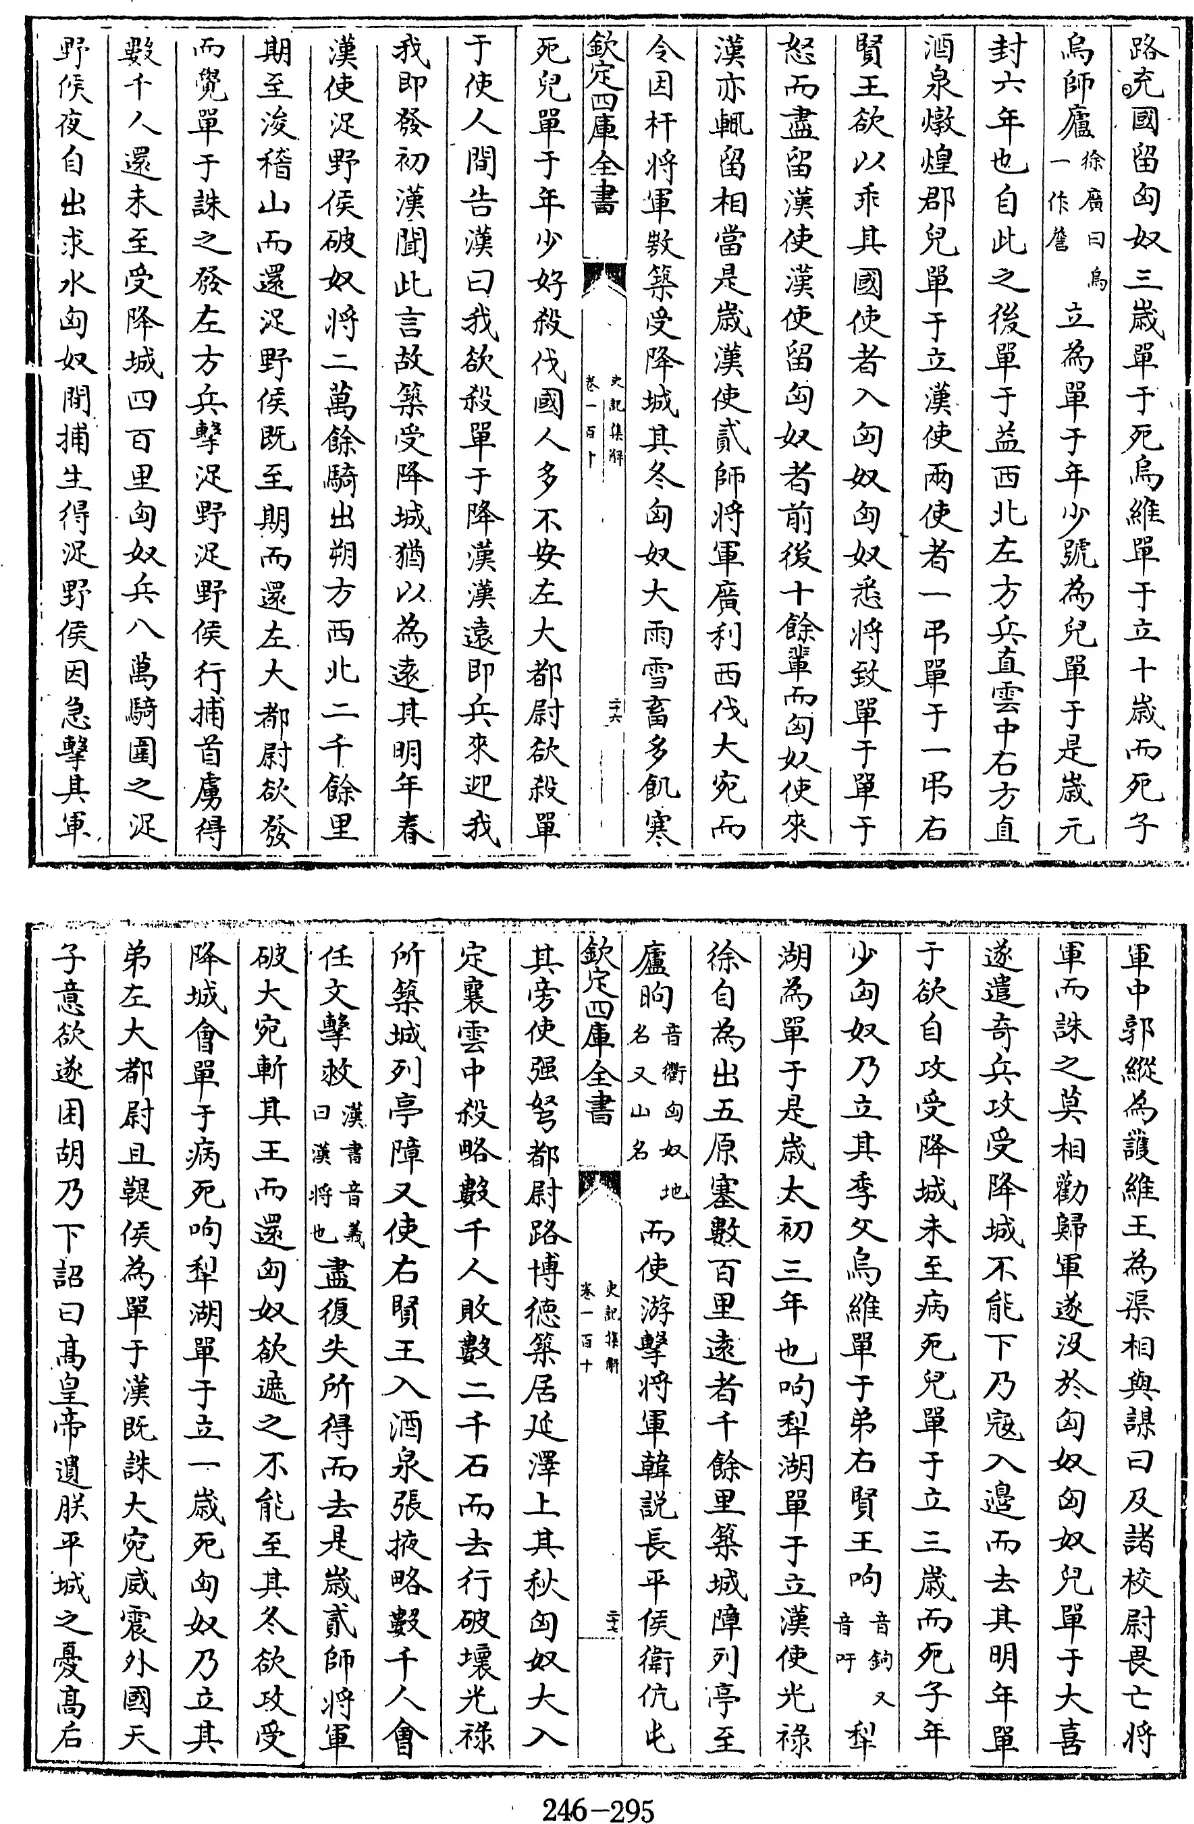 路充國留匈奴三歲單于死烏維單于立十歲而死子
烏師廬徐廣曰烏一作詹立為單于年少號為兒單于是歲元
封六年也自此之後單于益西北左方兵直雲中右方直
酒泉燉煌郡兒單于立漢使兩使者一弔單于一弔右
賢王欲以乖其國使者入匈奴匈奴悉將致單于單于
怒而盡留漢使漢使留匈奴者前後十餘輩而匈奴使來
漢亦輒留相當是歲漢使貳師將軍廣利西伐大宛而
令因杅將軍敖築受降城其冬匈奴大雨雪畜多飢寒
欽定四庫全書
史記集解
卷一百十
二十六
死兒單于年少好殺伐國人多不安左大都尉欲殺單
于使人間告漢曰我欲殺單于降漢漢遠即兵來迎我
我即發初漢聞此言故築受降城猶以為遠其明年春
漢使浞野侯破奴將二萬餘騎出朔方西北二千餘里
期至浚稽山而還浞野侯既至期而還左大都尉欲發
而覺單于誅之發左方兵擊浞野浞野侯行捕首虜得
數千人還未至受降城四百里匈奴兵八萬騎圍之浞
野侯夜自出求水匈奴間捕生得浞野侯因急擊其軍
軍中郭縱為護維王為渠相與謀曰及諸校尉畏亡將
軍而誅之莫相勸歸軍遂沒於匈奴匈奴兒單于大喜
遂遣奇兵攻受降城不能下乃寇入邊而去其明年單
于欲自攻受降城未至病死兒單于立三歲而死子年
少匈奴乃立其季父烏維單于弟右賢王呴音鉤又音吁犁
湖為單于是歲太初三年也呴犁湖單于立漢使光祿
徐自為出五原塞數百里遠者千餘里築城障列亭至
廬朐音衢匈奴地名又山名而使游擊將軍韓說長平侯衛伉屯
欽定四庫全書
史記集解
卷一百十
二十七
其旁使强弩都尉路博德築居延澤上其秋匈奴大入
定襄雲中殺略數千人敗數二千石而去行破壞光祿
所築城列亭障又使右賢王入酒泉張掖略數千人會
任文擊救漢書音義曰漢將也盡復失所得而去是歲貳師將軍
破大宛斬其王而還匈奴欲遮之不能至其冬欲攻受
降城會單于病死呴犁湖單于立一歲死匈奴乃立其
弟左大都尉且鞮侯為單于漢既誅大宛威震外國天
子意欲遂困胡乃下詔曰高皇帝遺朕平城之憂高后
246-295